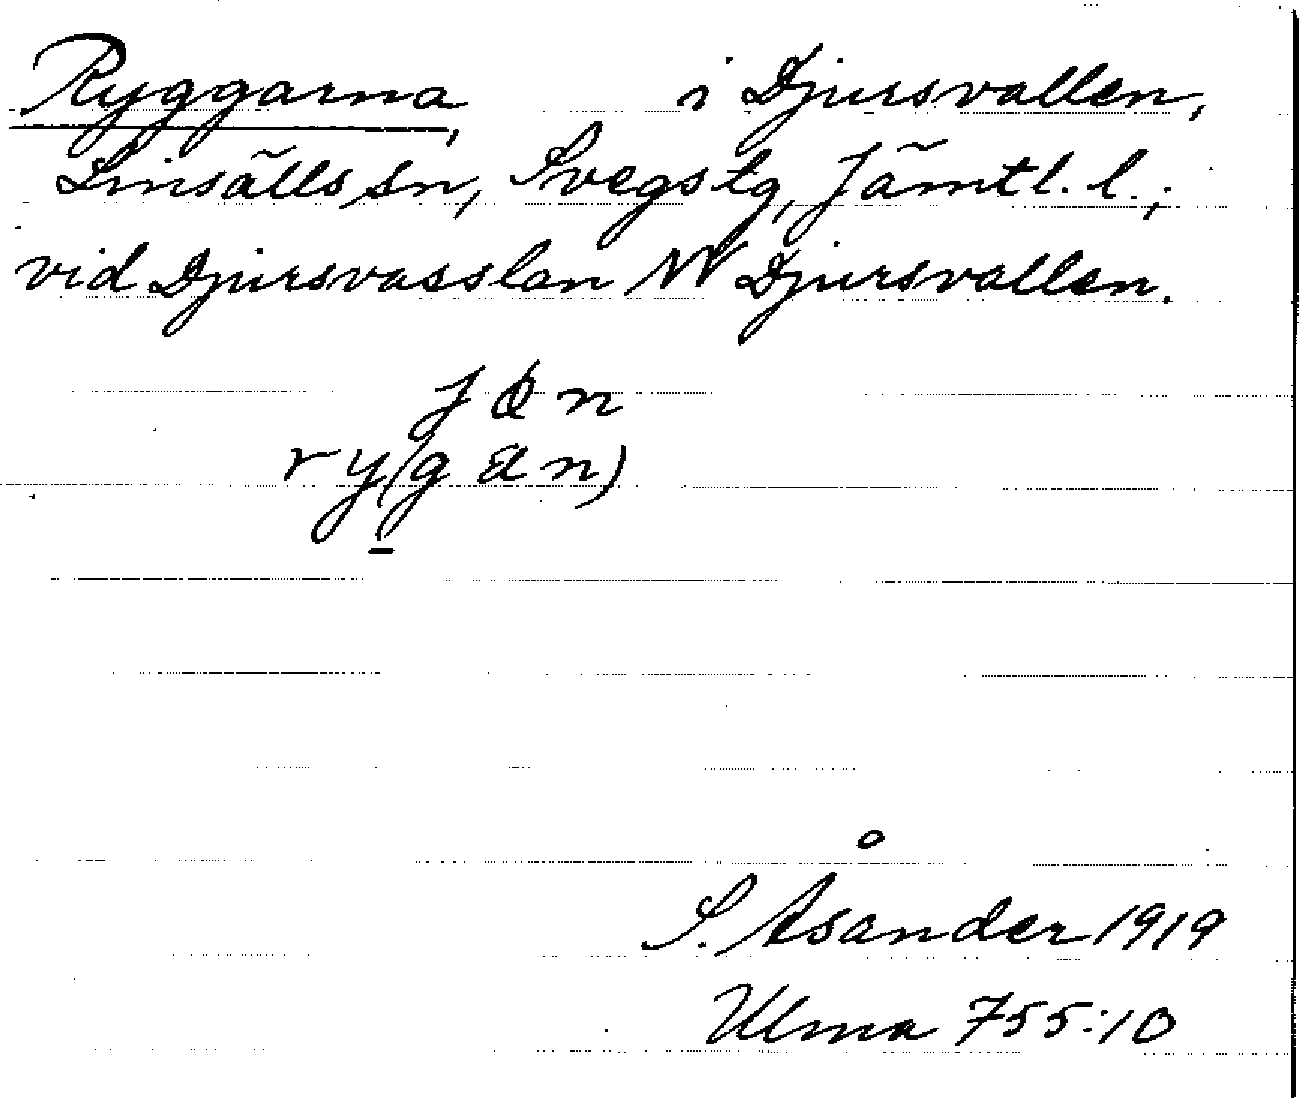 Ryggarna, i Djursvallen,
Linsälls sn, Svegs tg, Jämtl. l.;
vid Djursvasslan NV Djursvallen.
S. Åsander 1919
Ulma 755:10